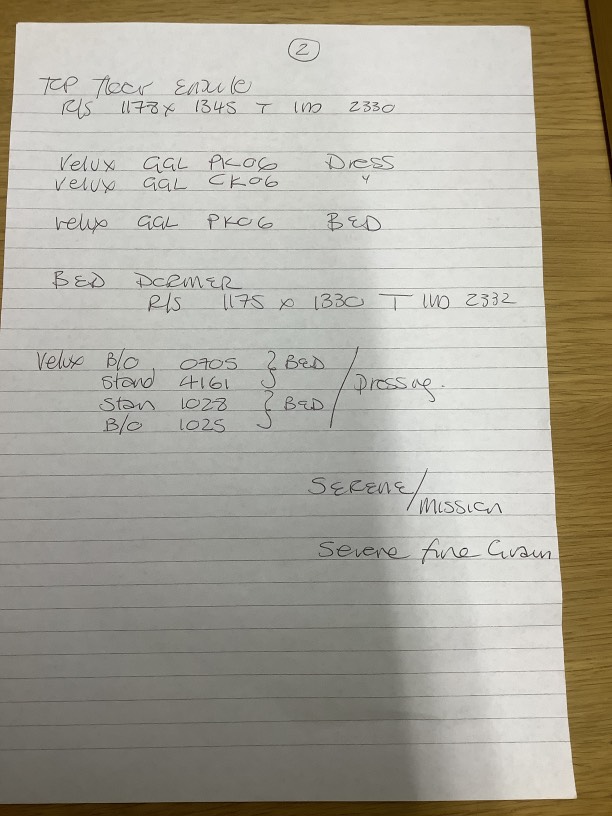 2
Top Floor Ensuite
R/S 1178 x 1345 T IND 2330
Velux GGL PK06 Dress
Velux GGL CK06 "
Velux GGL PK06 BED
BED DORMER
R/S 1175 x 1330 T IND 2332
Velux B/O 0705 } BED / Dressing.
Stand 4161
Stan 1028 } BED
B/O 1025
SERENE/MISSION
Severe fine Grain